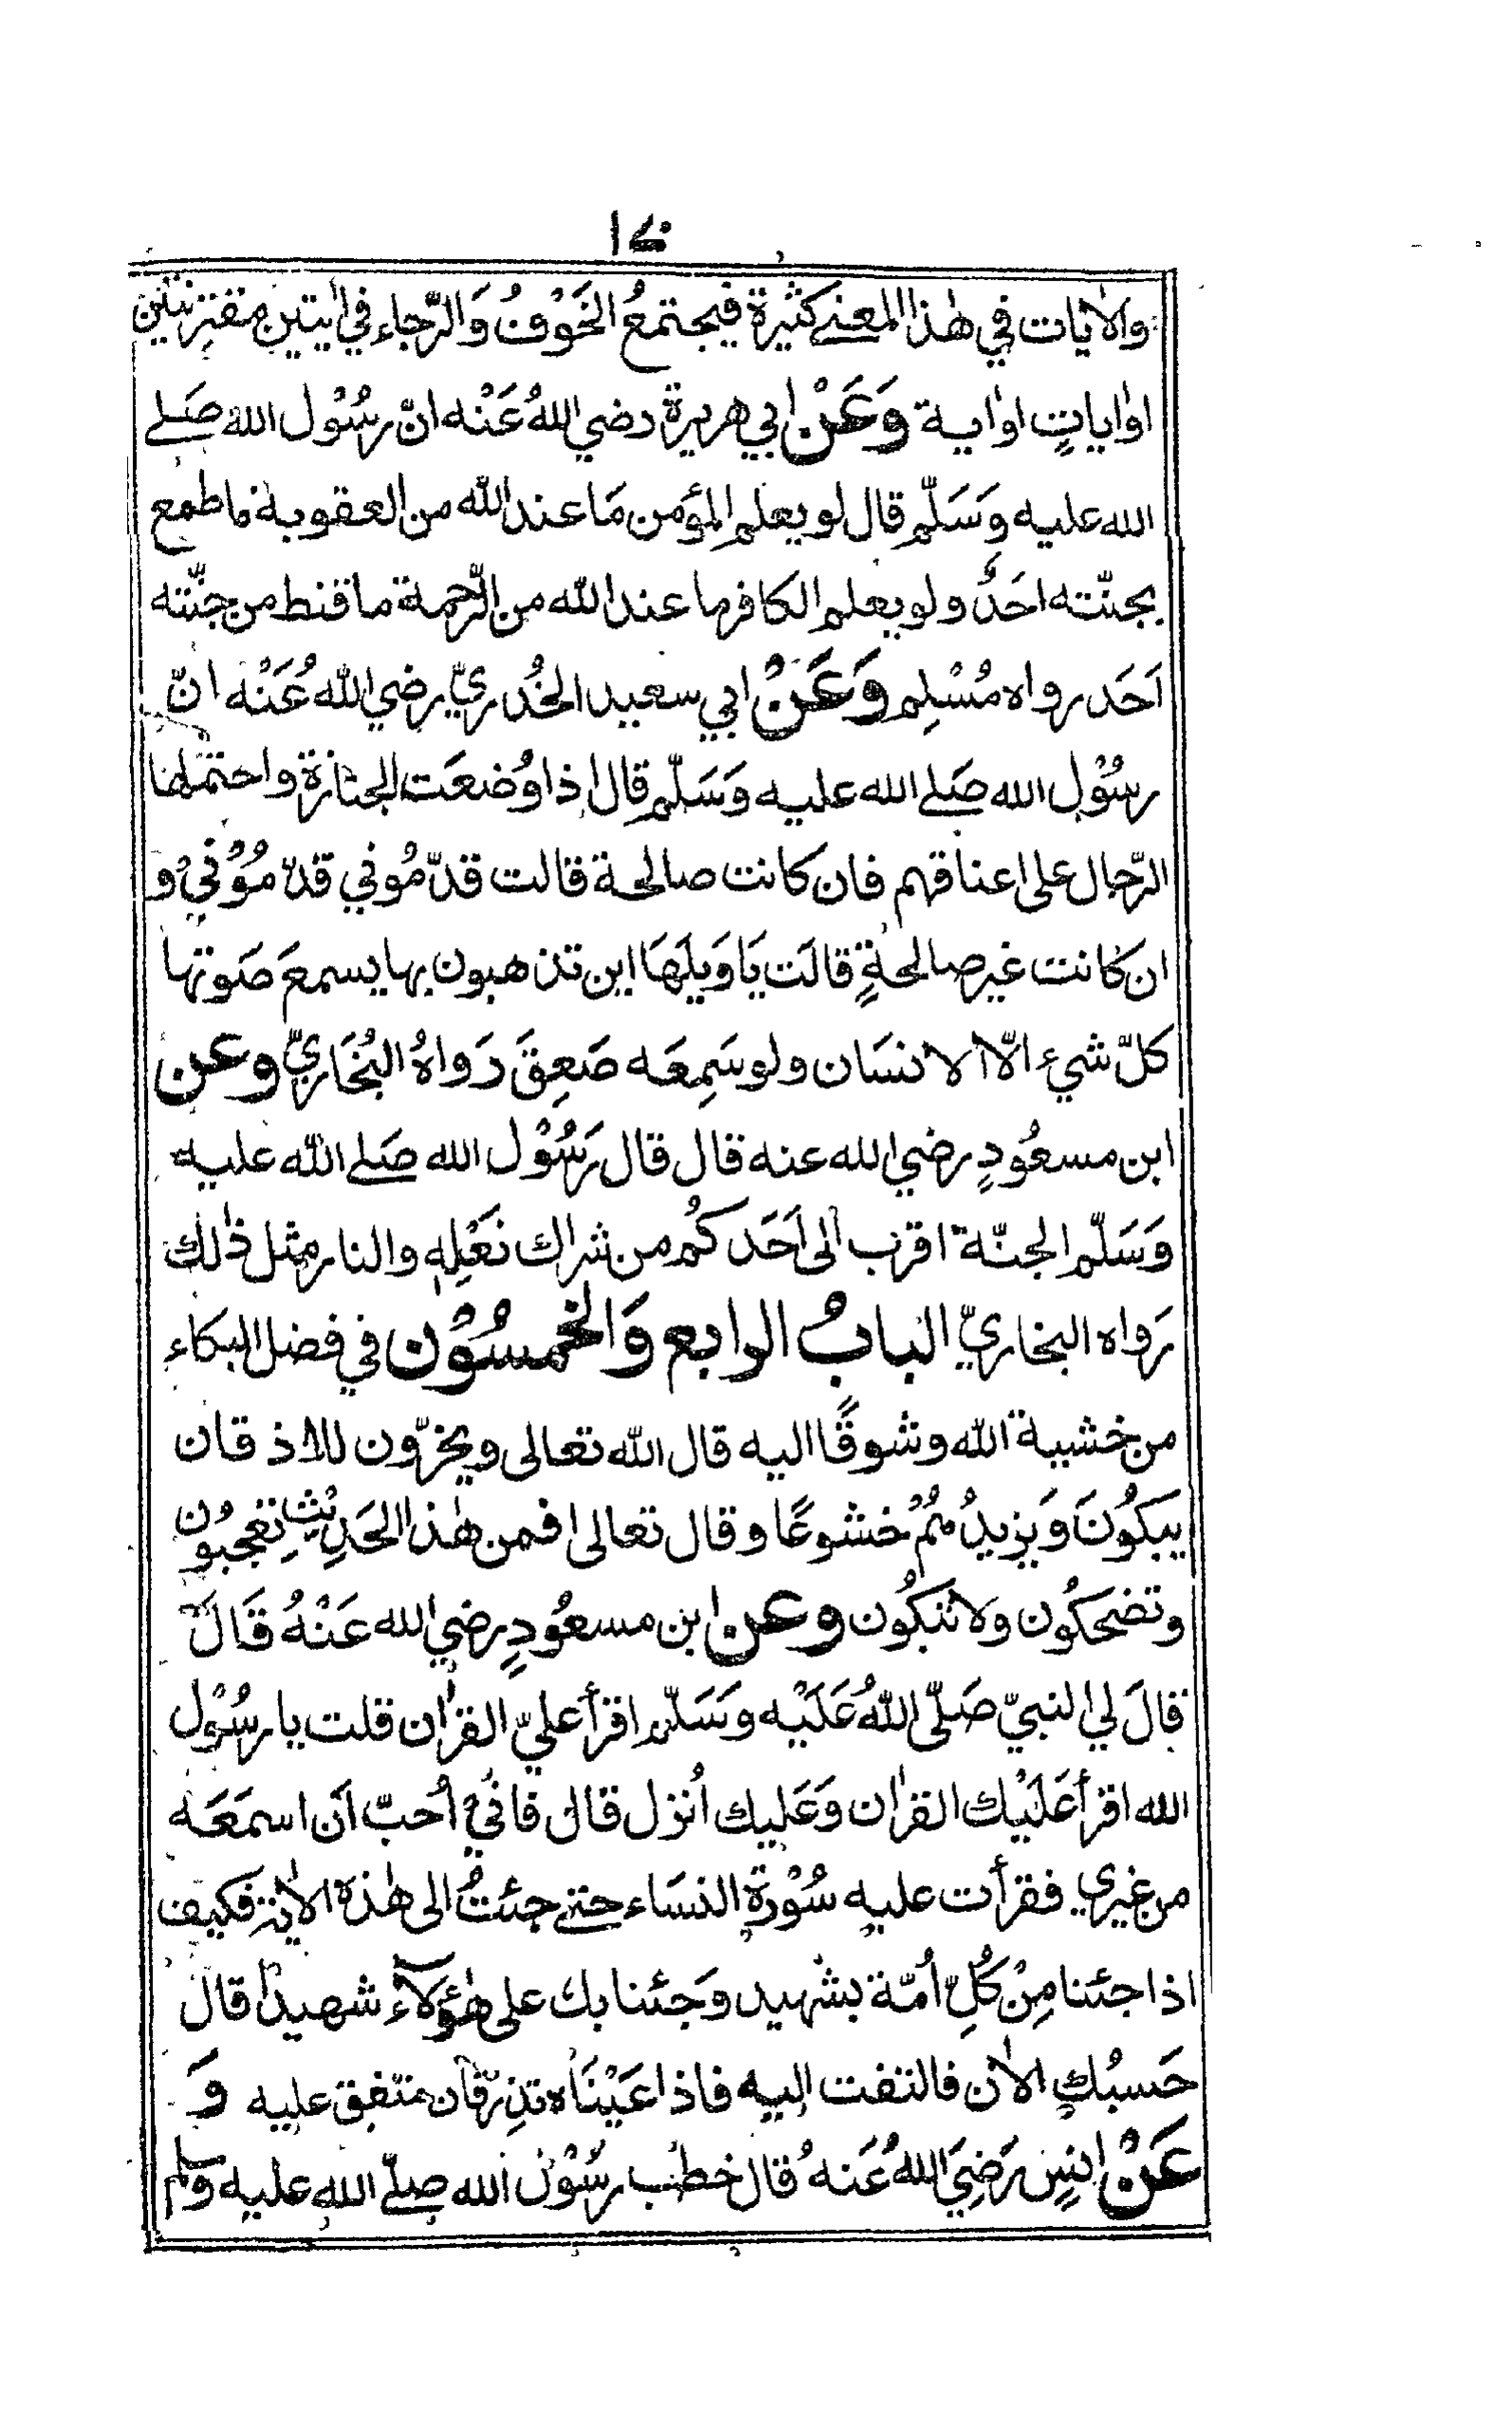 والاٰيات في هٰذا المعنے كثيرة فيجتمعُ الخَوْفُ وَالرّجاء في اٰيتين مقترنتين
او اٰياتٍ او اٰية وَعَنْ ابي هريرة رضي اللهُ عَنْه انّ رسُوْل الله صَلے
الله عليه وَسَلّم قال لو يعلم المؤمن مَا عند الله من العقوبة ما طمع
بجنّته احَدٌ ولو يعلم الكافر ما عند الله من الرّحمة ما قنط من جنّته
اَحَد رواه مُسْلِم وَعَنْ ابي سعيد الخُدريّ رضي الله عَنْه انّ
رسُوْل الله صَلے الله عليه وَسَلّم قال اذا وُضعَت الجنازة واحتملها
الرّجال على اعناقهم فان كانت صالحة قالت قدّمُوني قدّمُوْني و
ان كانت غير صالحةٍ قالَت يَا وَيلَهَا اين تذهبون بها يسمعَ صَوتها
كلّ شيء الّا الانسَان ولو سَمِعَه صَعِقَ رَواهُ البُخَاريّ وعن
ابن مسعُودٍ رضي الله عنه قال قال رَسُوْل الله صَلے الله عليه
وَسَلّم الجنّة اقرب الى اَحَدكُم من شراك نَعْلِهٖ والنار مثل ذٰلك
رَواه البخاريّ البابُ الرابع وَالخمسُوْن في فضل البكاء
من خشية الله وشوقًا اليه قال الله تعالى ويخرّون للاذقان
يبكُونَ وَيزيدُهُمْ خشوعًا وقال تعالى افمن هٰذا الحَدِيْثِ تَعْجَبُوْن
وتضحكُون ولا تَبكُون وعن ابن مسعُودٍ رضي الله عَنْهُ قَالَ
قالَ لي النبيّ صَلّى اللهُ عَلَيْه وَسَلّم اقرأ عليّ القراٰن قلت يا رسُوْل
الله اقرأ عَلَيْك القراٰن وَعَليك اُنزل قال فانّي اُحبّ اَن اسمَعَه
من غيري فقرأت عليه سُوْرة النسَاء حتے جئتُ الى هٰذه الاٰية فكيف
اذا جئنا مِنْ كُلِّ اُمّة بشهيد وَجئنا بك على هٰؤلاۤء شهيدًا قال
حَسبُك الاٰن فالتفت اليه فاذا عَيْنَاه تذرفان متفق عليه وَ
عَنْ انسٍ رَضِيَ اللهُ عَنهُ قال خطب رسُوْل الله صلّے الله عليه وسلم